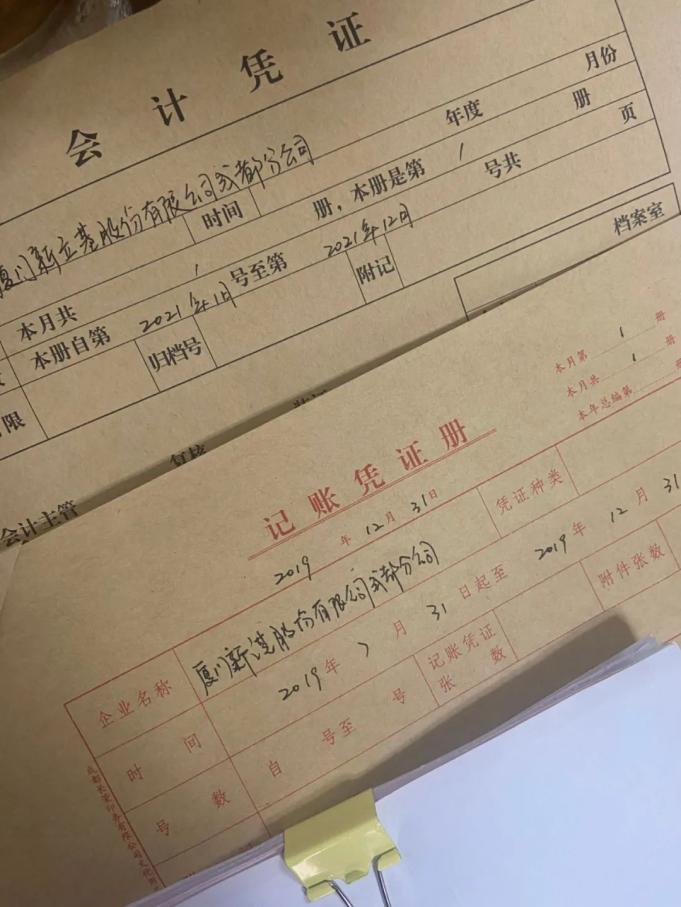 会计凭证
年度 月份
厦门新立基股份有限公司成都分公司
时间
本月共 1 册，本册是第 1 册
本册自第 2021年1月 号至第 2021年12月 号共 页
归档号
附记
档案室
限
会计主管
复核
本月第 1 册
本月共 1 册
本年总编第 册
记账凭证册
2019年12月31日
凭证种类
企业名称 厦门新 股份有限公司成都分公司
时间 2019年 月31日起至2019年12月31
号数 自 号至 号
记账凭证张数
附件张数